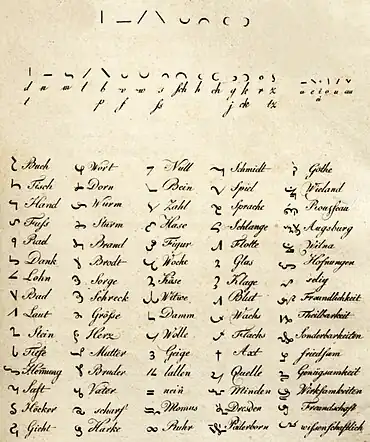 d n m l b v w s sch h ch g k r z
t p f ß j ck tz
a e i o u au
Buch Wort Null Schmidt Göthe
Tisch Dorn Bein Spiel Wieland
Hand Wurm Zahl Sprache Rousseau
Faß Sturm Hase Schlange Augsburg
Rad Brand Figur Flotte
Dank Brodt Woche Glas Hofnungen
Lohn Sorge Käse Klage selig
Bad Schreck Witwe Blut Freundlichkeit
Laut Größe Damm Wachs Theilbarkeit
Stein Herz Wolle Flachs Sonderbarkeiten
Tiefe Mutter Geige Axt friedsam
Bruder lallen Quelle Genügsamkeit
Saft Vater nein Minden Wirksamkeiten
Höcker scharf Momus Dresden Freundschaft
Gicht Harke Paderborn wissenschaftlich